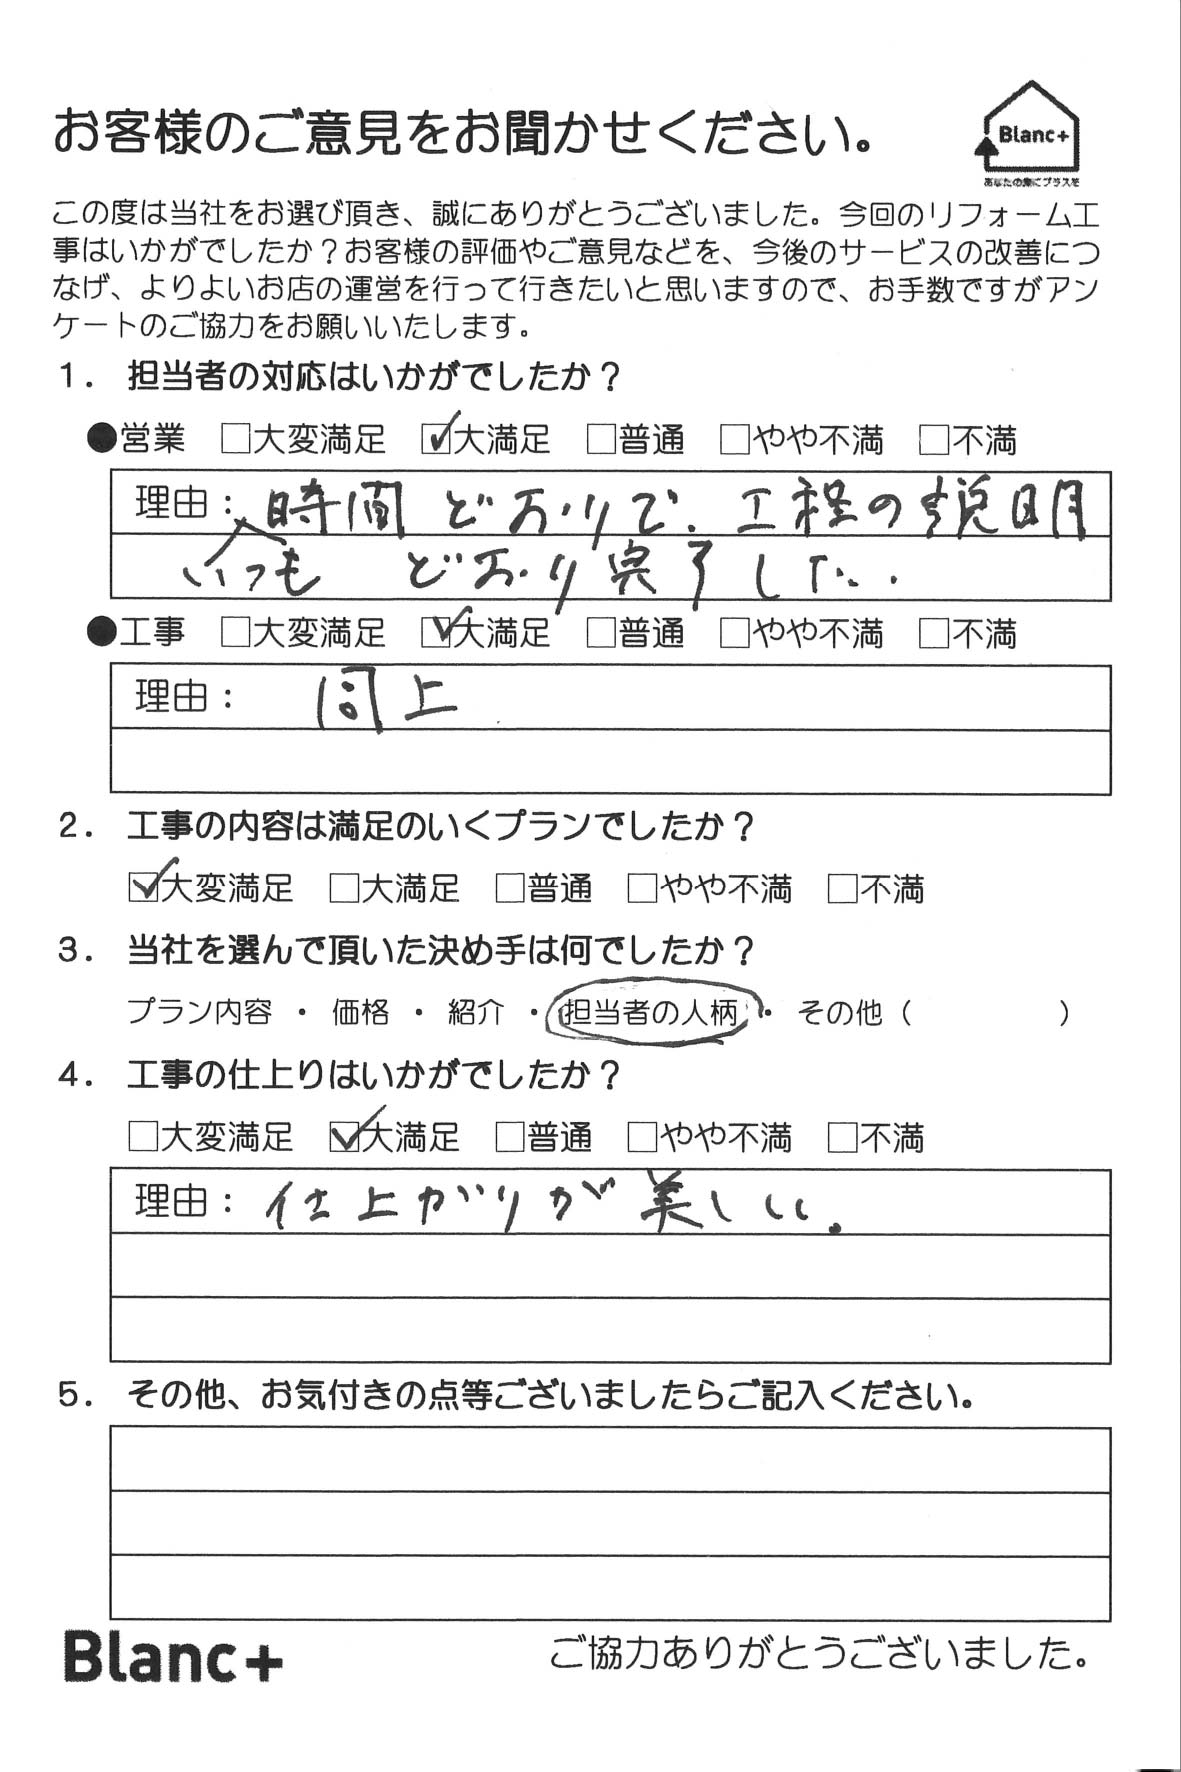 お客様のご意見をお聞かせください。
Blanc+
あなたの家にプラスを
この度は当社をお選び頂き、誠にありがとうございました。今回のリフォーム工
事はいかがでしたか？お客様の評価やご意見などを、今後のサービスの改善につ
なげ、よりよいお店の運営を行って行きたいと思いますので、お手数ですがアン
ケートのご協力をお願いいたします。
1． 担当者の対応はいかがでしたか？
●営業 □大変満足 ☑大満足 □普通 □やや不満 □不満
理由： 時間どおりで、工程の説明
いつも どおり完了した．
●工事 □大変満足 ☑大満足 □普通 □やや不満 □不満
理由： 同上
2． 工事の内容は満足のいくプランでしたか？
☑大変満足 □大満足 □普通 □やや不満 □不満
3． 当社を選んで頂いた決め手は何でしたか？
プラン内容 ・ 価格 ・ 紹介 ・ 担当者の人柄 ・ その他（ ）
4． 工事の仕上りはいかがでしたか？
□大変満足 ☑大満足 □普通 □やや不満 □不満
理由： 仕上がりが美しい。
5． その他、お気付きの点等ございましたらご記入ください。
Blanc+ ご協力ありがとうございました。